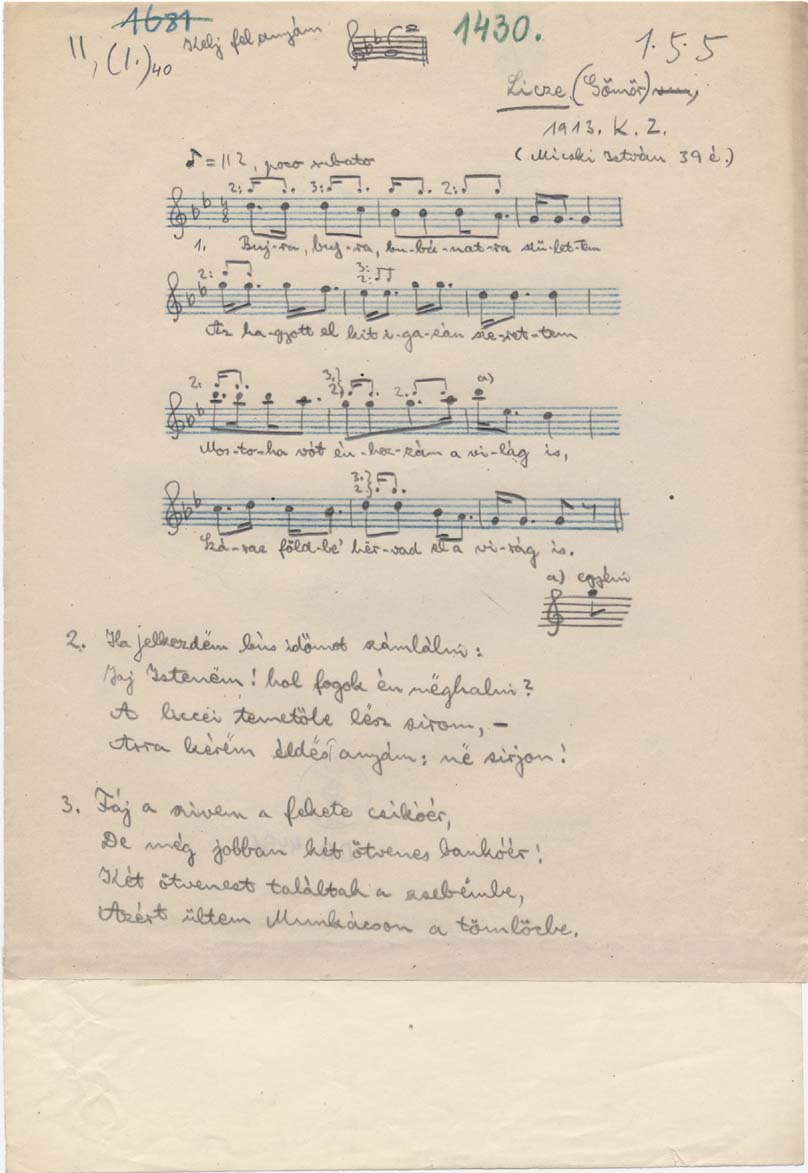 1681
II, (1.)40 Kelj fel anyám 1430. 1.5.5
Licze (Gömör)
1913. K. Z.
(Micski István 39 é.)
♪ = 112, poco rubato
2: 3: 2:
1. Buj-ra, buj-ra, bu-bá-nat-ra szü-let-tem
2: 3: 2:
Az ha-gyott el kit i-ga-zán sze-ret-tem
2. 3.} 2} 2. a)
Mos-to-ha vót én-hoz-zám a vi-lág is,
3.} 2.}
Szá-raz föld-be' hër-vad el a vi-rág is.
a) egyéni
2. Ha jelkezdëm bús időmot számlálni:
Jaj Istenëm! hol fogok én mëghalni?
A liccei temetőbe lësz sirom, –
Arra kérëm éldës anyám: në sirjon!
3. Fáj a szivem a fekete csikóér,
De még jobban két ötvenes bankóér!
Két ötvenest találtak a zsebëmbe,
Azért ültem Munkácson a tömlöcbe.